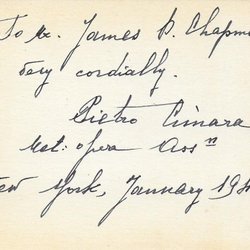 To Mr. James B. Chapm
Very cordially.
Pietro Cimara
Met: opera Ass n
New York, January 194